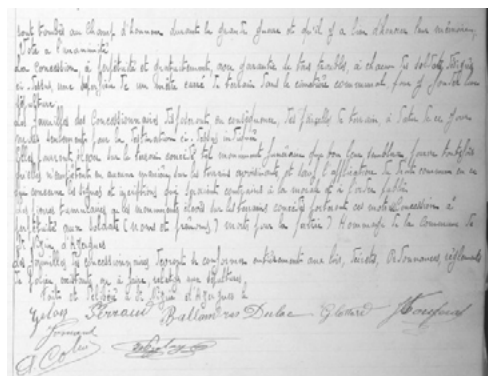 sont tombés au champ d'honneur durant la grande guerre et qu'il y a lieu d'honorer leur mémoire,
Vote à l'unanimité
La concession, à perpétuité et gratuitement, avec garantie de tous troubles, à chacun des soldats désignés
ci-dessus, une superficie de un mètre carré de terrain dans le cimetière communal pour y fonder leur
sépulture.
Les familles des Concessionnaires disposeront en conséquence, des parcelles de terrain, à dater de ce jour
mais seulement pour la destination ci-dessus indiquée
Elles pourront élever sur le terrain concédé tel monument funéraire que bon leur semblera pourvu toutefois
qu'elles n'empiètent en aucune manière sur les terrains avoisinants et sauf l'application du droit commun en ce
qui concerne les signes et inscriptions qui seraient contraires à la morale et à l'ordre public
Les pierres tumulaires ou les monuments élevés sur les terrains concédés porteront ces mots Concession à
perpétuité aux soldats (noms et prénoms) morts pour la Patrie) Hommage de la Commune de
St
Les familles des concessionnaires devront se conformer entièrement aux lois, décrets, Ordonnances, règlements
de police existants ou à faire relatifs aux sépultures.
Fait et délibéré à St
Perraud Ballandras Duclos
Colin